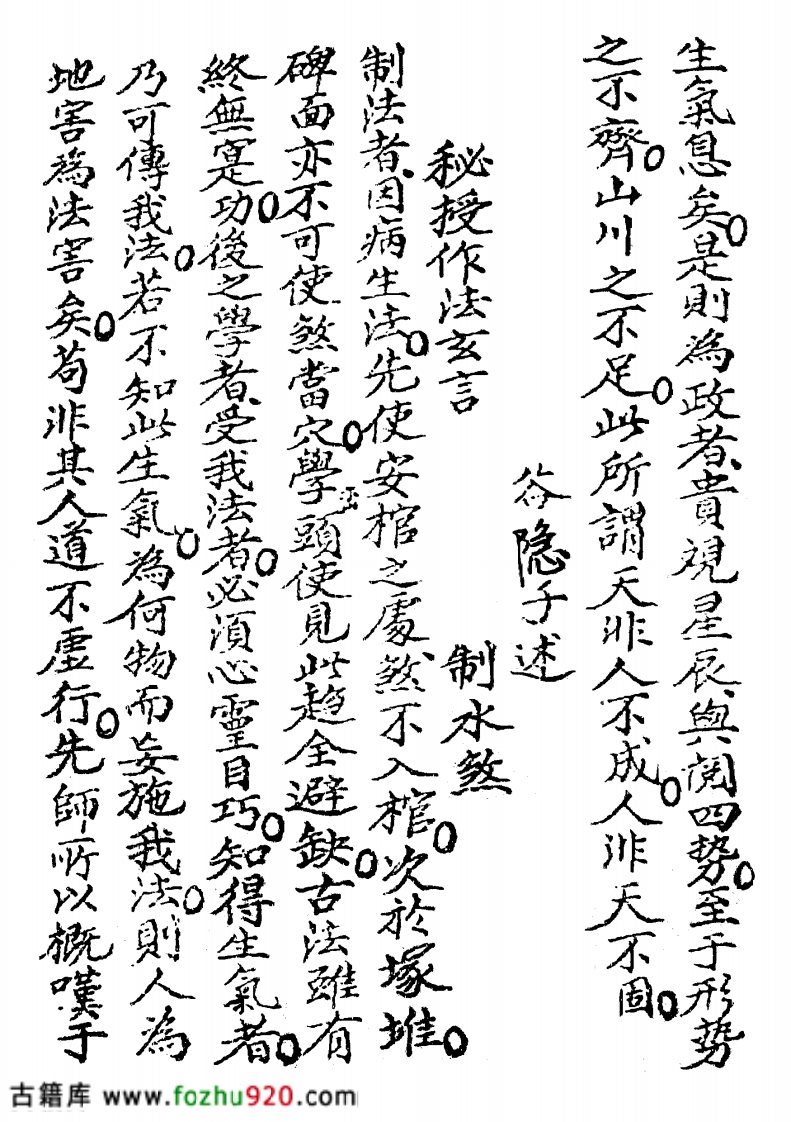 生氣息矣。是則為政者、貴視星辰、與閱四勢。至于形勢
之不齊。山川之不足。此所謂天非人不成。人非天不固。
谷隱子述
秘授作法玄言
制水煞
制法者、因病生法。先使安棺之處、煞不入棺。次於塚堆。
碑面亦不可使煞當穴。學頭使見此趋全避缺。古法雖有
終無寔功。後之學者、受我法者。必須心靈目巧。知得生氣者。
乃可傳我法。若不知此生氣。為何物而妄施我法。則人為
地害為法害矣。苟非其人道不虛行。先師所以概嘆于
古籍库 www.fozhu920.com